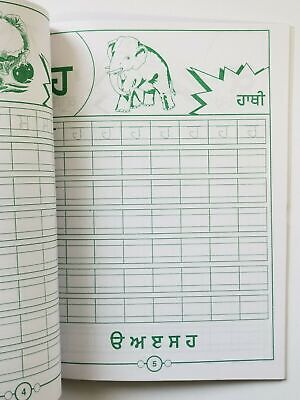 ਹ
ਹਾਥੀ
ਹ ਹ ਹ ਹ ਹ ਹ ਹ ਹ
ੳ ਅ ੲ ਸ ਹ
4
5